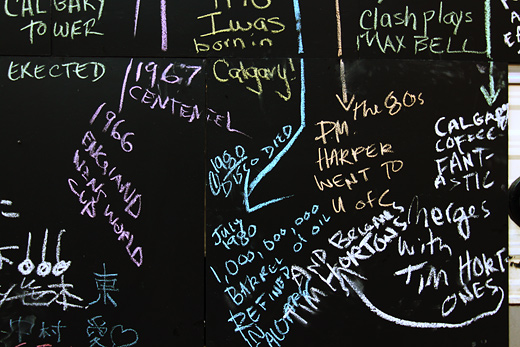 CALGARY
TOWER
I was
born in
Calgary!
Clash plays
MAX BELL
EKECTED
1967
CENTENTEL
1966
ENGLAND
WINS WORLD
CUP
1980
DISCO DIED
the 80s
P.M.
HARPER
WENT TO
U of C
CALGARY
COFFEE
FANT-
ASTIC
JULY
1980
1,000,000,000
BARREL of oil
REFINED
IN
AND BECOMES
TIM HORTONS
Merges
with
TIM HORT-
ONES
東
愛♡
中村